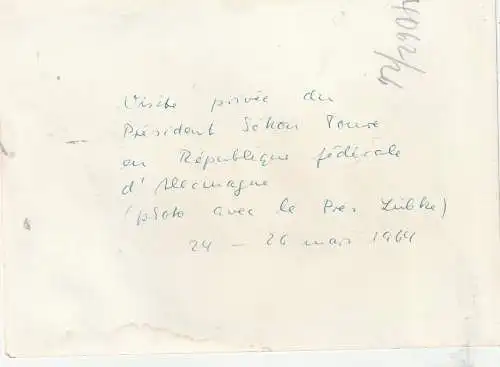 4062/26
Visite privée du
Président Sékou Toure
en République fédérale
d'Allemagne
(photo avec le Prés Lübke)
24 – 26 mars 1964